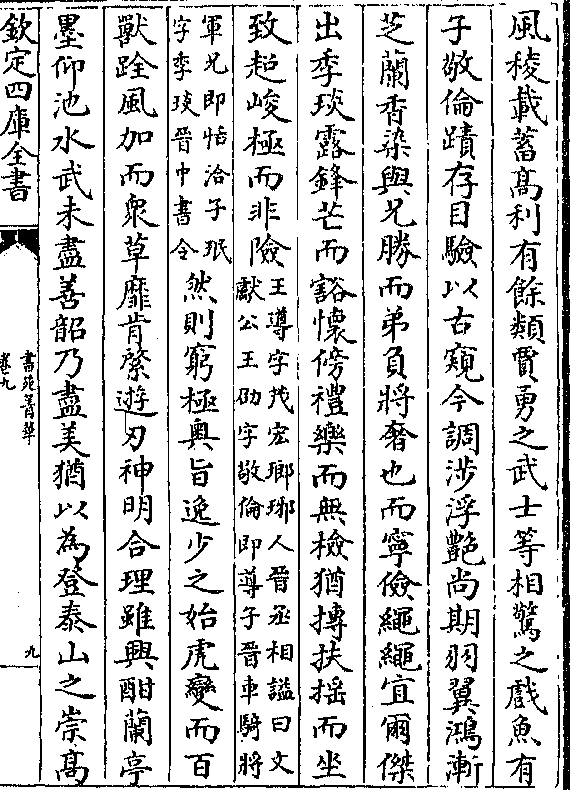 風稜載蓄高利有餘類賈勇之武士等相驚之戲魚有
子敬倫蹟存目驗以古窺今調涉浮艶尚期羽翼鴻漸
芝蘭香染與兄勝而弟負將奢也而寧儉繩繩宜爾傑
出季琰露鋒芒而豁懷傍禮樂而無檢猶摶扶揺而坐
致超峻極而非險王導字茂宏瑯琊人晉丞相謚曰文
獻公王劭字敬倫即導子晉車騎將
軍兄即恬洽子珉
字季琰晉中書令然則窮極奧旨逸少之始虎變而百
獸跧風加而衆草靡肯綮遊刃神明合理雖興酣蘭亭
墨仰池水武未盡善韶乃盡美猶以為登泰山之崇高
欽定四庫全書
書苑菁華
卷九
九